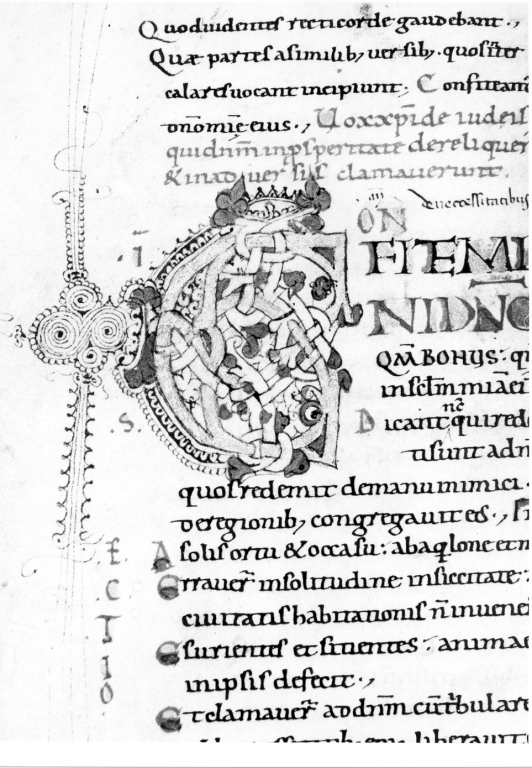 Quod uidentes recti corde gaudebant.,
Quæ partes a similib; uersib; quos inter
calares uocant incipiunt; Confiteami
onomię eius., Uox xp̄i de iudeis
qui dn̄m in psperitate derelinquer
& in aduersis clamauerunt.
de necessitatibus
ī
C ON
FITEMI
NI DNO
QM̄ BONUS: q
in sclm̄ mīa ei
Dicant nc̄ qui red
ti sunt a dn̄
.S.
quos redemit de manu inimici.
de regionib; congregauit eos.,
A solis ortu & occasu: ab aqlone et m
Errauer̄ in solitudine in siccitate:
ciuitatis habitationis n̄ inuene
Esurientes et sitientes: anima
in ipsis defecit.,
Et clamauer̄ ad dn̄m cū tribulare
liberauit
L
E
C
T
I
O